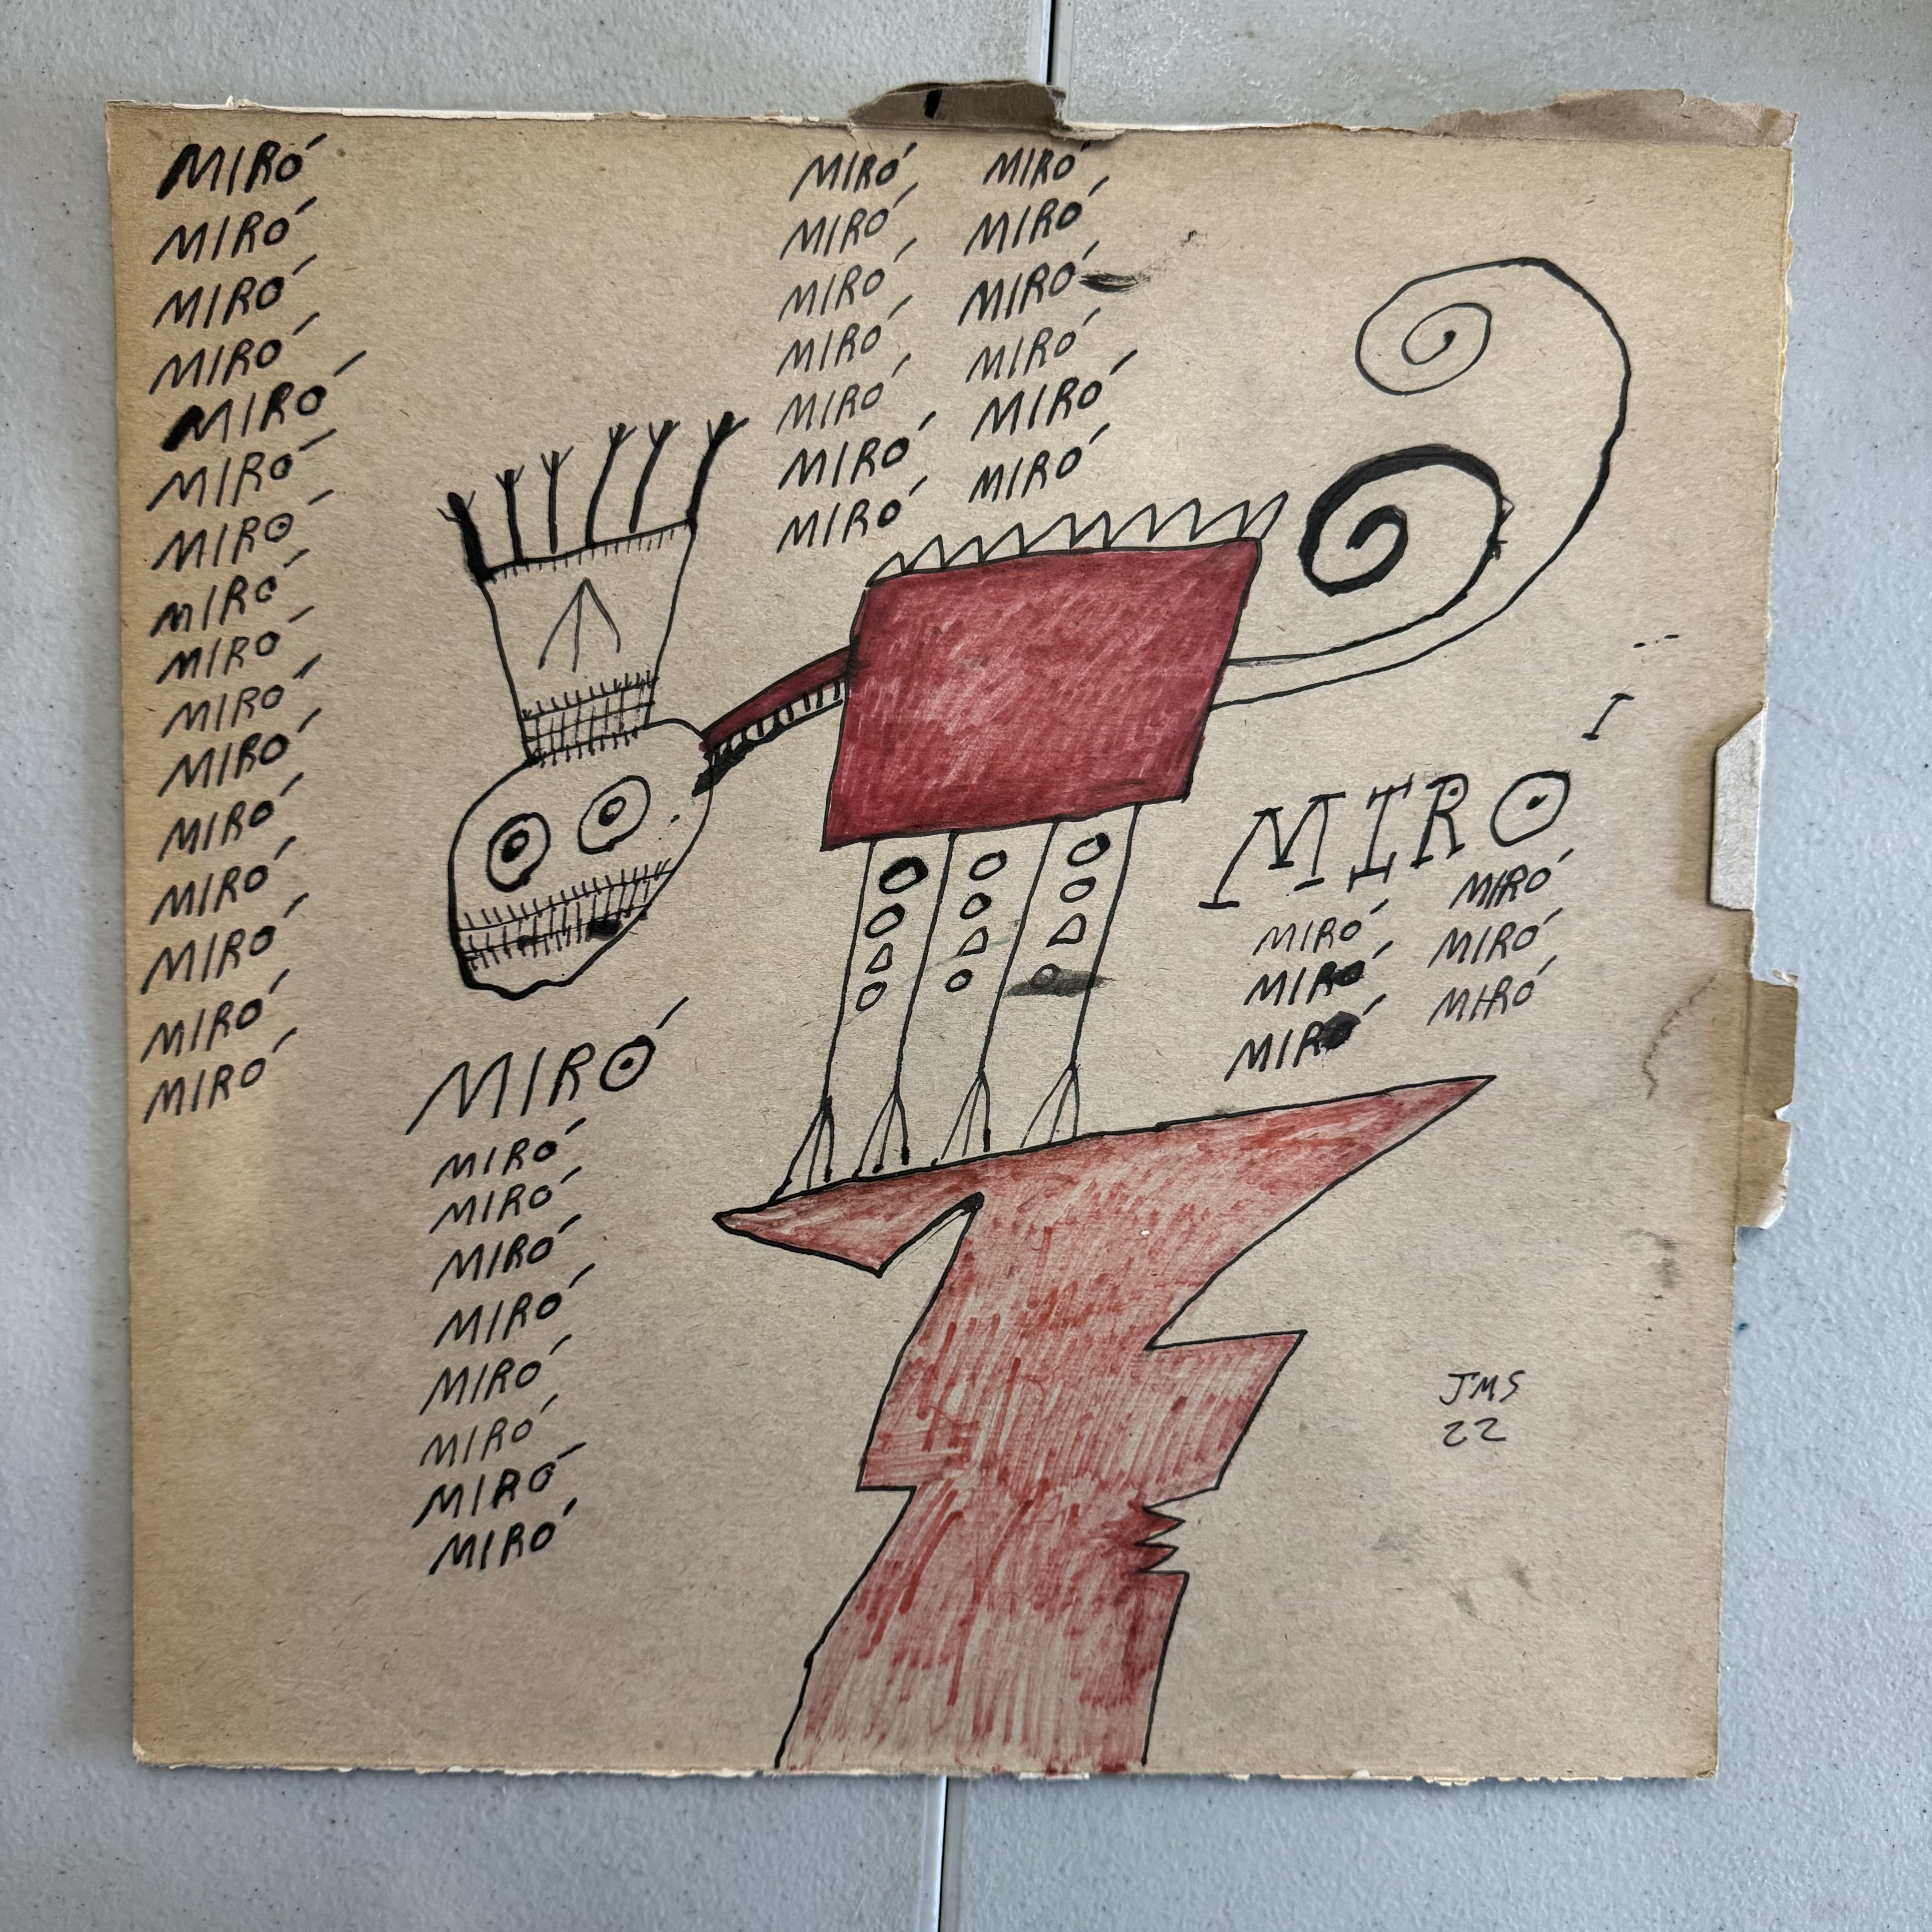 MIRÓ
MIRÓ
MIRÓ
MIRÓ
MIRÓ
MIRÓ
MIRÓ
MIRÓ
MIRÓ
MIRÓ
MIRÓ
MIRÓ
MIRÓ
MIRÓ
MIRÓ
MIRÓ
MIRÓ
MIRÓ
MIRÓ
MIRÓ
MIRÓ
MIRÓ
MIRÓ
MIRÓ
MIRÓ
MIRÓ
MIRÓ
MIRÓ
MIRÓ
MIRÓ
MIRÓ
MIRÓ
MIRÓ
MIRÓ
MIRÓ
MIRÓ
MIRÓ
MIRÓ
MIRÓ
MIRÓ
MIRÓ
MIRÓ
MIRÓ
MIRÓ
MIRÓ
JMS
22